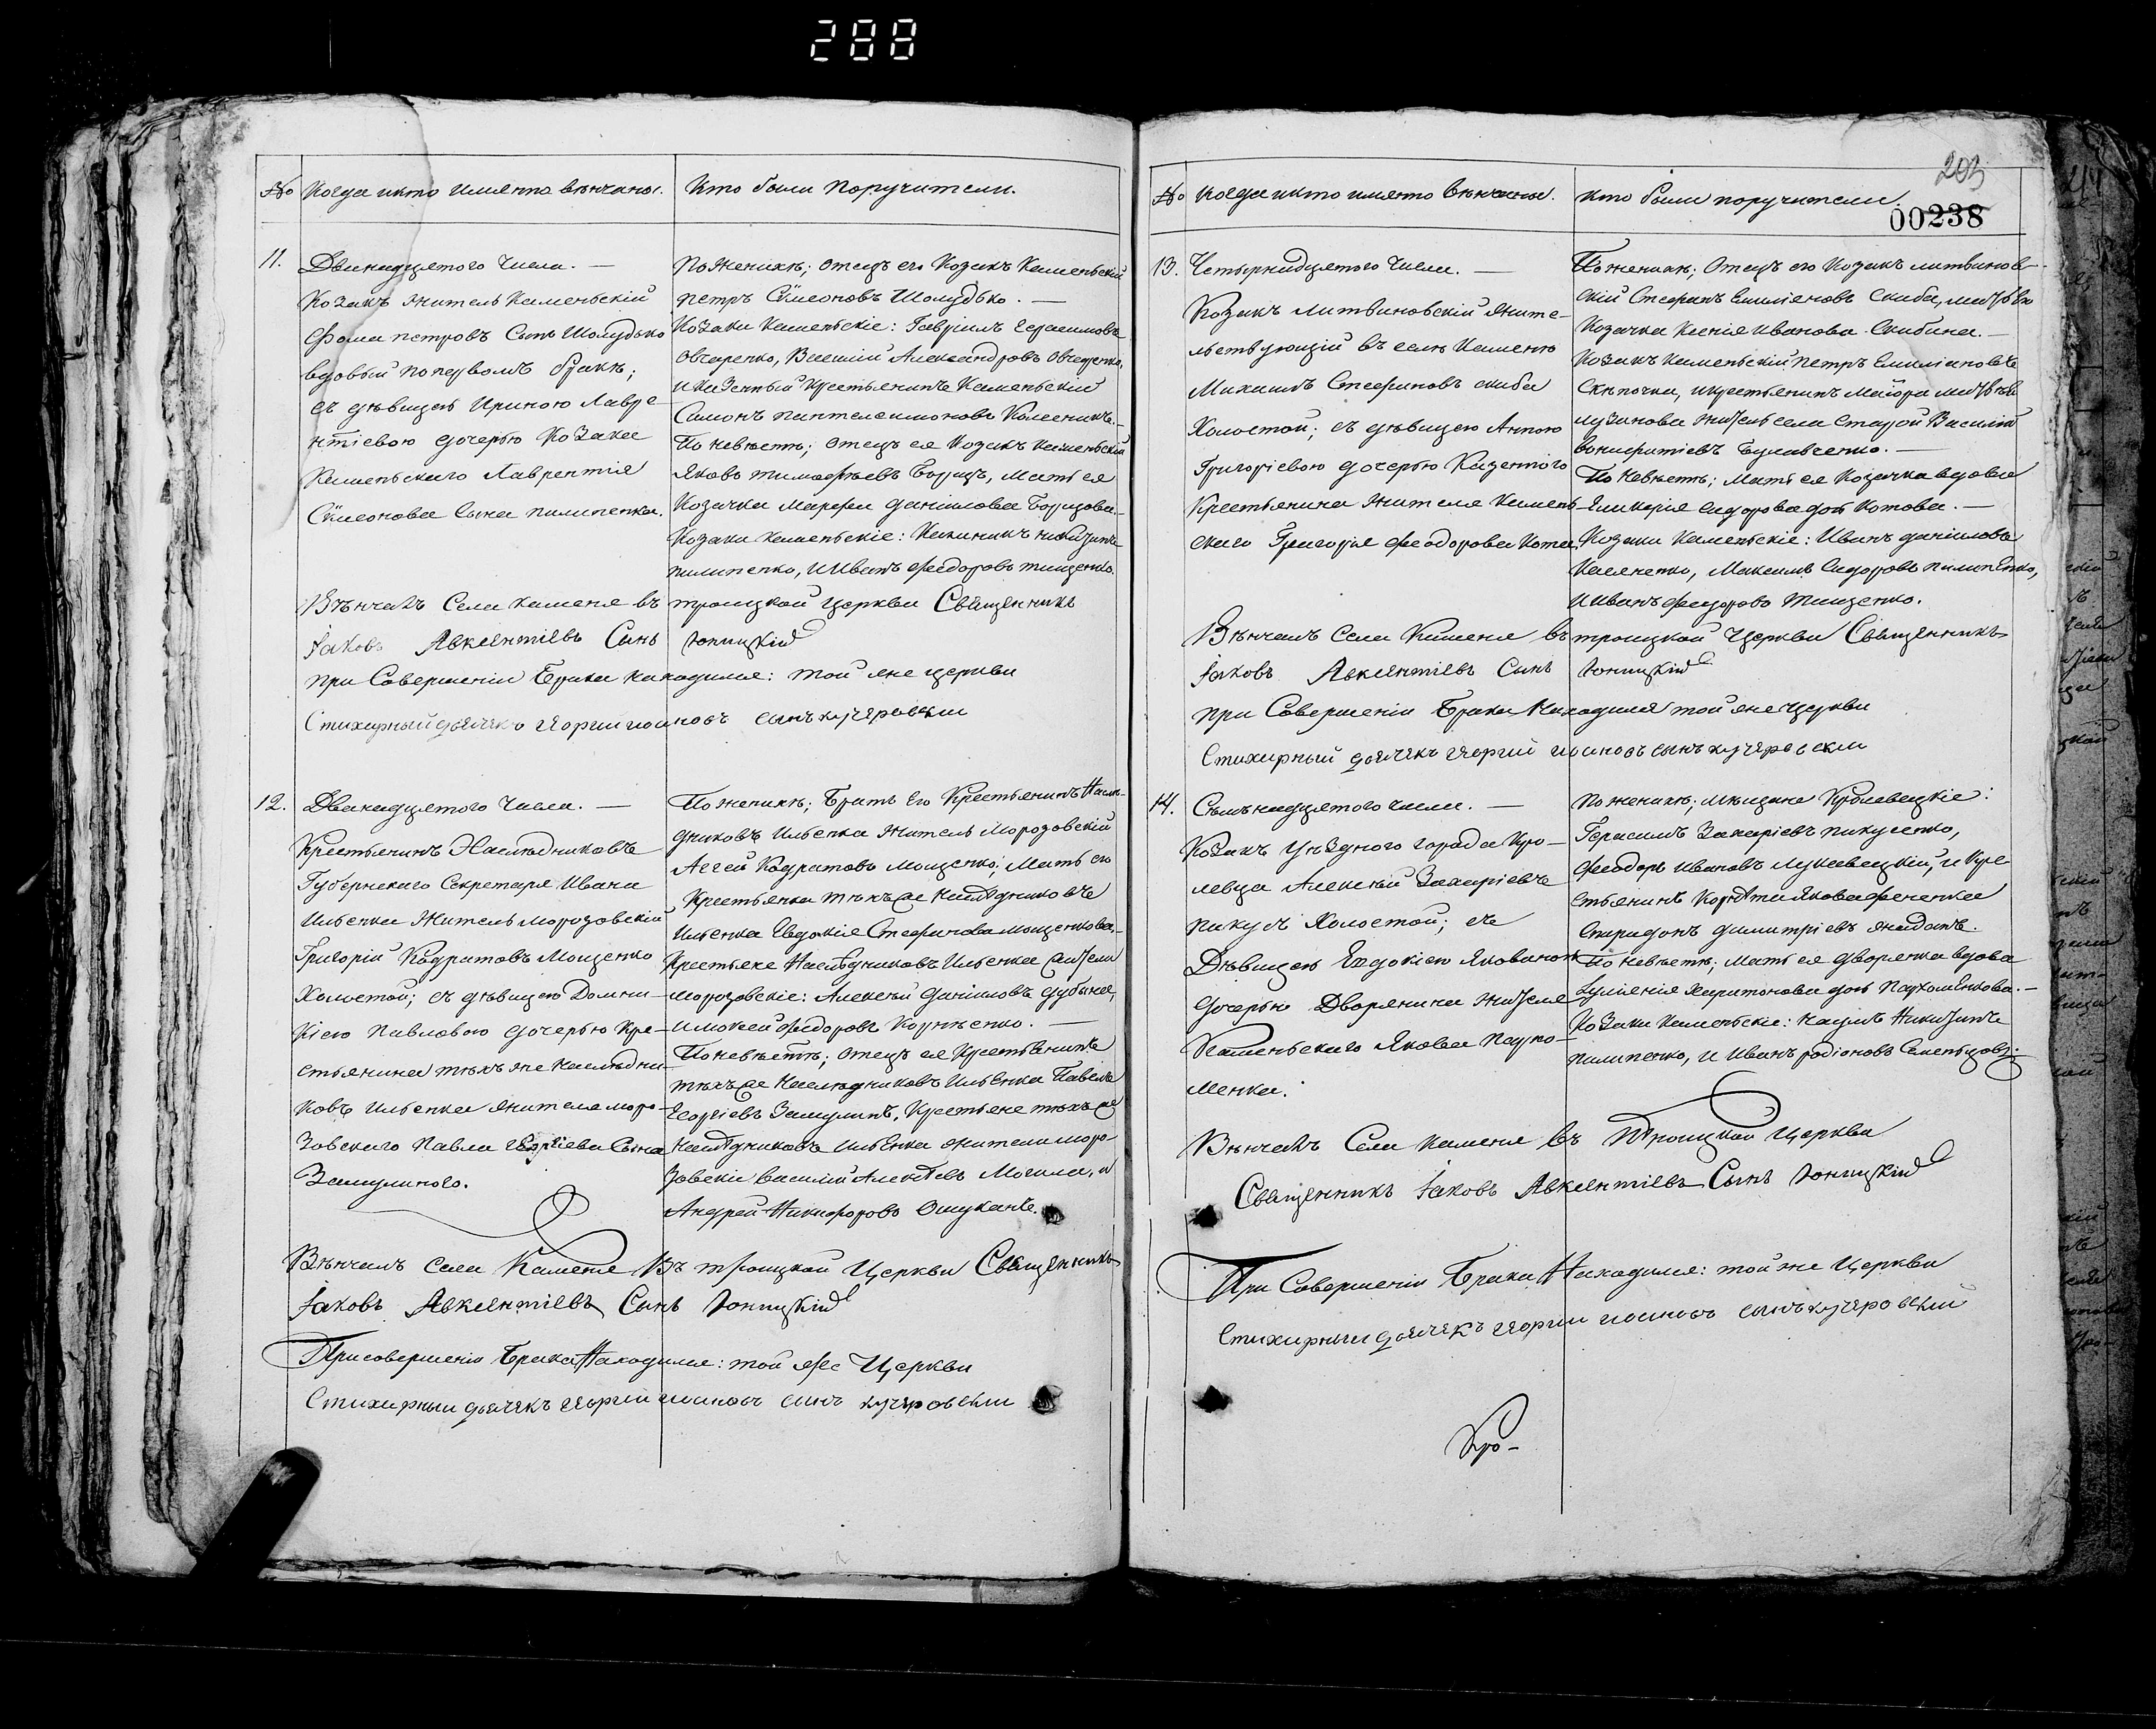 288
№ Когда и кто имянно вѣнчаны.
Кто были поручители.
11. Двенадцятого числа. —
Козакъ житель Каменьскій
Фома Петровъ сынъ Шолудько
вдовый по первомъ бракѣ;
съ дѣвицею Ириною Лавре-
нтіевою дочерью Козака
Каменьскаго Лаврентія
Сѵмеонова сына Пилипенка.
По женихѣ; отецъ его Козакъ Каменьскій
Петръ Сѵмеоновъ Шолудько. —
Козаки Каменьскіе: Гавріилъ Герасимовъ
Овчаренко, Василій Александровъ Овчаренко,
и казенный крестьянинъ Каменьскій
Самонъ Пантелеимоновъ Колесникъ. —
По невѣстѣ; отецъ ея Козакъ Каменьскій
Яковъ Тимофѣевъ Борзцъ, мать ея
Козачка Марфа Даніилова Борзцова. —
Козаки Каменьскіе: Никитинъ
Пилипенко, и Иванъ Феодоровъ Тищенко.
Вѣнчалъ села Каменя въ Троицкой церкви Священникъ
Іаковъ Авксентіевъ Сынъ
При совершеніи брака находился: той же церкви
Стихирный дьячекъ Георгій Іоановъ сынъ Кучеровскій
12. Дванадцятого числа. —
Крестьянинъ Наслѣдниковъ
Губернскаго Секретаря Ивана
Ильенка житель Морозовскій
Григорій Кодратовъ Мощенко
Холостой; съ дѣвицею Домни-
кіею Павловою дочерью кре-
стьянина тѣхъ же наслѣдни-
ковъ Ильенка жителя Моро-
зовскаго Павла Георгіева сына
Замулиного.
По женихѣ; братъ его крестьянинъ Наслѣ-
дниковъ Ильенка житель Морозовскій
Аггей Кодратовъ Мощенко; мать его
Крестьянка тѣхъ же Наслѣдниковъ
Ильенка Евдокія Стефанова Мощенкова. —
Крестьяне Наслѣдниковъ Ильенка жители
Морозовскіе: Алексѣй Даніиловъ Дубина,
и Мокей Федоровъ Корнѣенко. —
По невѣстѣ; отецъ ея крестьянинъ
тѣхъ же Наслѣдниковъ Ильенка Павелъ
Георгіевъ Замулинъ. Крестьяне тѣхъ же
Наслѣдниковъ Ильенка жители Моро-
зовскіе Василій Алексѣевъ Могила, и
Андрей Никифоровъ Ошуканъ.
Вѣнчалъ села Каменя въ Троицкой Церкви Священникъ
Іаковъ Авксентіевъ Сынъ
При совершеніи брака находился: той же Церкви
Стихирный дьячекъ Георгій Іоановъ сынъ Кучеровскій
203
00238
№ Когда и кто имянно вѣнчаны.
Кто были поручители.
13. Четырнадцятого числа. —
Козакъ Литвиновскій жите-
льствующій въ селѣ Каменю
Михаилъ Стефановъ Скиба
Холостой; съ дѣвицею Анною
Григоріевою дочерью казенного
Крестьянина жителя Камень-
скаго Григорія Феодорова Кота.
По женихѣ; отецъ его Козакъ Литвинов-
скій Стефанъ Емиліановъ Скиба, мать его
Козачка Ксенія Иванова Скибина. —
Козакъ Каменьскій Петръ Емиліановъ
Скѣпочка, и крестьянинъ Маіора
житель села Старой Василій
Вонифатіевъ —
По невѣстѣ; мать ея Козачка вдова
Гликерія Сидорова дочь Котова. —
Козаки Каменьскіе: Иванъ Даніиловъ
Касяненко, Максимъ Сидоровъ Пилипенко,
и Иванъ Феодоровъ Тищенко.
Вѣнчалъ села Каменя въ Троицкой Церкви Священникъ
Іаковъ Авксентіевъ Сынъ
При совершеніи брака находился той же Церкви
Стихирный дьячекъ Георгій Іоановъ сынъ Кучеровскій
14. Сѣмънадцятого числа. —
Козакъ уѣздного города Кро-
левца Алексѣй Захаріевъ
Пикулъ Холостой; съ
Дѣвицею Евдокіею Яковиною
дочерью Дворянина жителя
Каменьскаго Якова Пархо-
менка.
По женихѣ; мѣщане Кролевецкіе:
Герасимъ Захаріевъ Пикуленко,
Феодоръ Ивановъ Лукавецкій, и кре-
стьянинъ Якова Фененка
Спиридонъ Димитріевъ Жайданъ.
По невѣстѣ; мать ея дворянка вдова
Харитонова дочь Пархоменкова. —
Козаки Каменьскіе: Наумъ Никитинъ
Пилипенко, и Иванъ Родіоновъ
Вѣнчалъ Села Каменя въ Троицкой Церкви
Священникъ Іаковъ Авксентіевъ Сынъ
При совершеніи брака находился: той же Церкви
Стихирный дьячекъ Георгій Іоановъ сынъ Кучеровскій